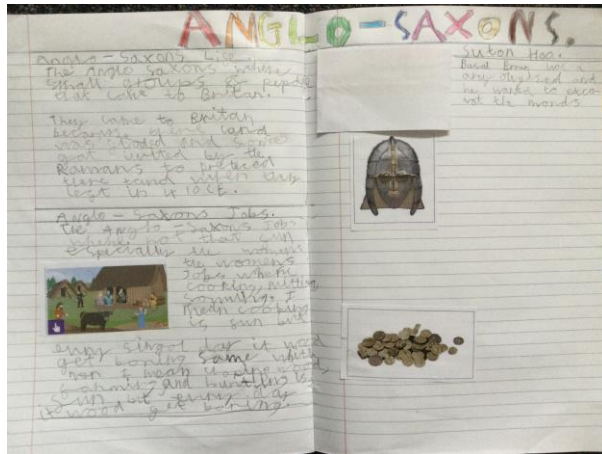 ANGLO-SAXONS.
Anglo-Saxons Life.
The Anglo Saxons where
small groups of people
that came to Britan.
They came to Britan
because there land
was flooded and some
got invited by the
Ramans to
there land when they
left in 410 CE.
Anglo-Saxons Jobs.
The Anglo-Saxons Jobs
where not that fun
especially the womens
the womens
Jobs where
cooking, nitting,
I
mean cooking
is fun but
evry singal day it wood
get boring same with
men I mean
farming and bunting is
fun but evry day
it wood get boring.
Suton Hoo.
Basal Brown was a
and
he wanted to exca
vat the monds